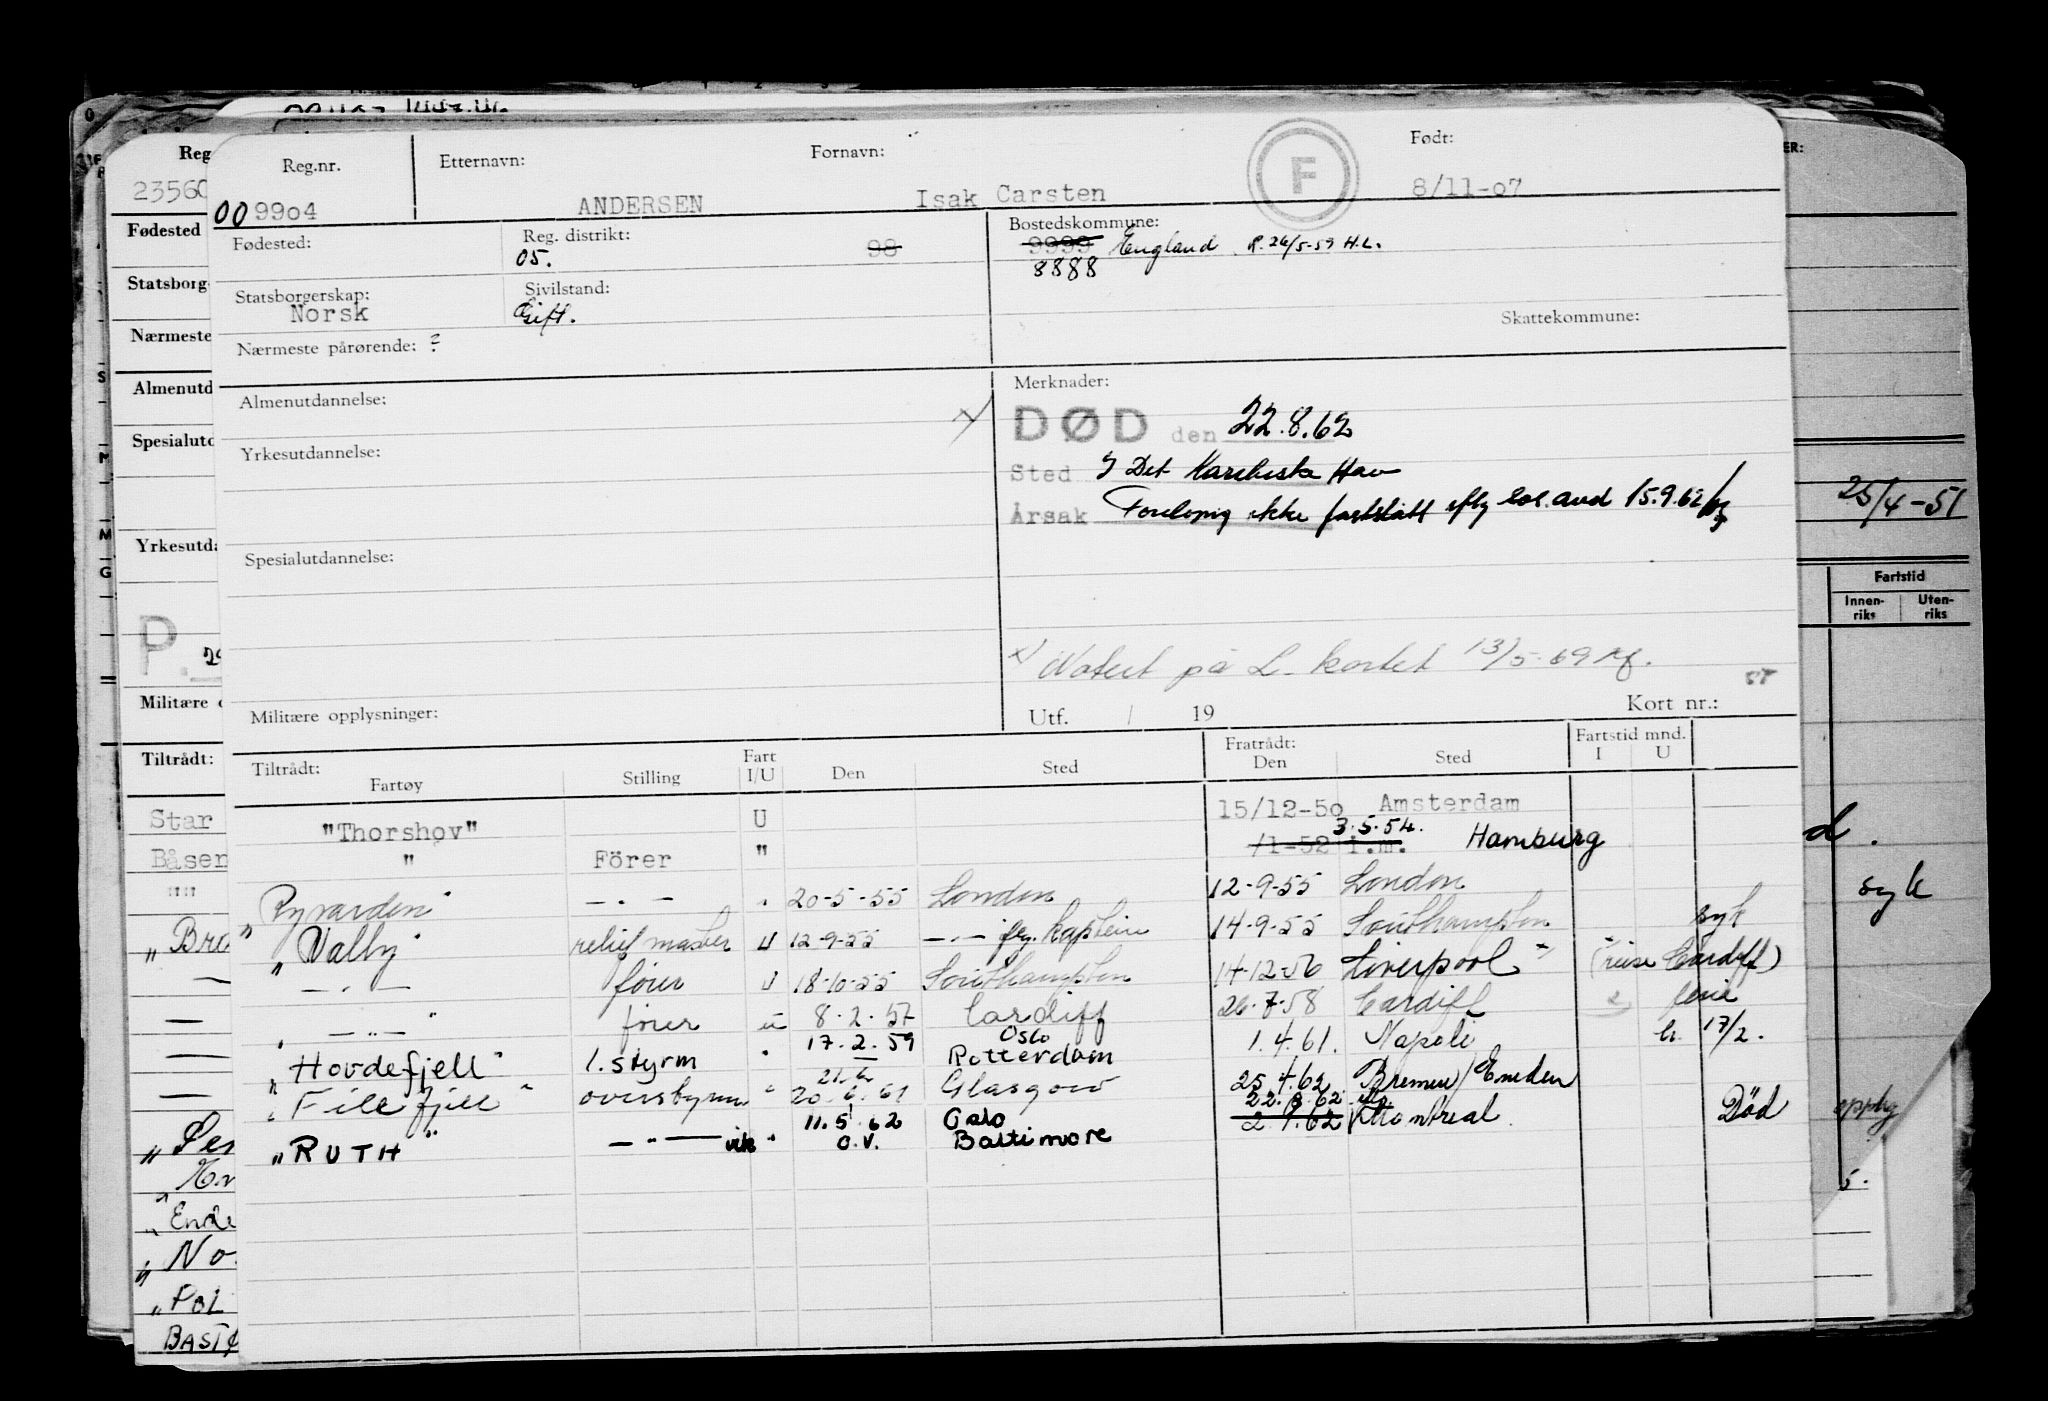 Reg.nr.
Etternavn:
Fornavn:
F
Født:
009904
ANDERSEN
Isak Carsten
8/11-07
Fødested:
Reg. distrikt:
05.
98
Bostedskommune:
9999 England R. 26/5-59 H.L.
8888
Statsborgerskap:
Norsk
Sivilstand:
Gift.
Skattekommune:
Nærmeste pårørende: ?
Almenutdannelse:
Merknader:
DØD den 22.8.62
Yrkesutdannelse:
Sted I Det Karibiske Hav
Årsak Foreløpig ikke fastslått 15.9.62
Spesialutdannelse:
x) Notert på L-kortet 13/5-69
Militære opplysninger:
Utf. / 19
Kort nr.:
Tiltrådt:
Fartøy
Stilling
Fart I/U
Den
Sted
Fratrådt:
Den
Sted
Fartstid mnd.
I U
"Thorshov" U 15/12-50 Amsterdam
" Förer " /1-52 i.m. 3.5.54. Hamburg
" — . — 20-5-55 London 12-9-55 London
"Valby" relief master U 12-9-55 — " — kaptein 14-9-55 Southampton syk
— " — fører U 18-10-55 Southampton 14-12-56 Liverpool (reise Cardiff)
— " — fører U 8.2.57 Cardiff 26.7.58 Cardiff ferie
"Hovdefjell" 1. styrm " 17.2.59 Oslo Rotterdam 1.4.61. Napoli 17/2.
"Fillefjell" overstyrm " 20.6.61 Glasgow 25.4.62 Bremen/Emden
"RUTH" — " — vik " 11.5.62 Oslo
O.V. Baltimore 22.8.62 2.7.62 Montreal Død
Reg
23560
Fødested
Statsborg
Nærmeste
Almenutd
Spesialutd
Yrkesutda
P.
Militære
Tiltrådt:
Star
Båsen
" "
"Ende
BAST
ER:
25/4-51
Fartstid
Innenriks
Utenriks
d.
syk